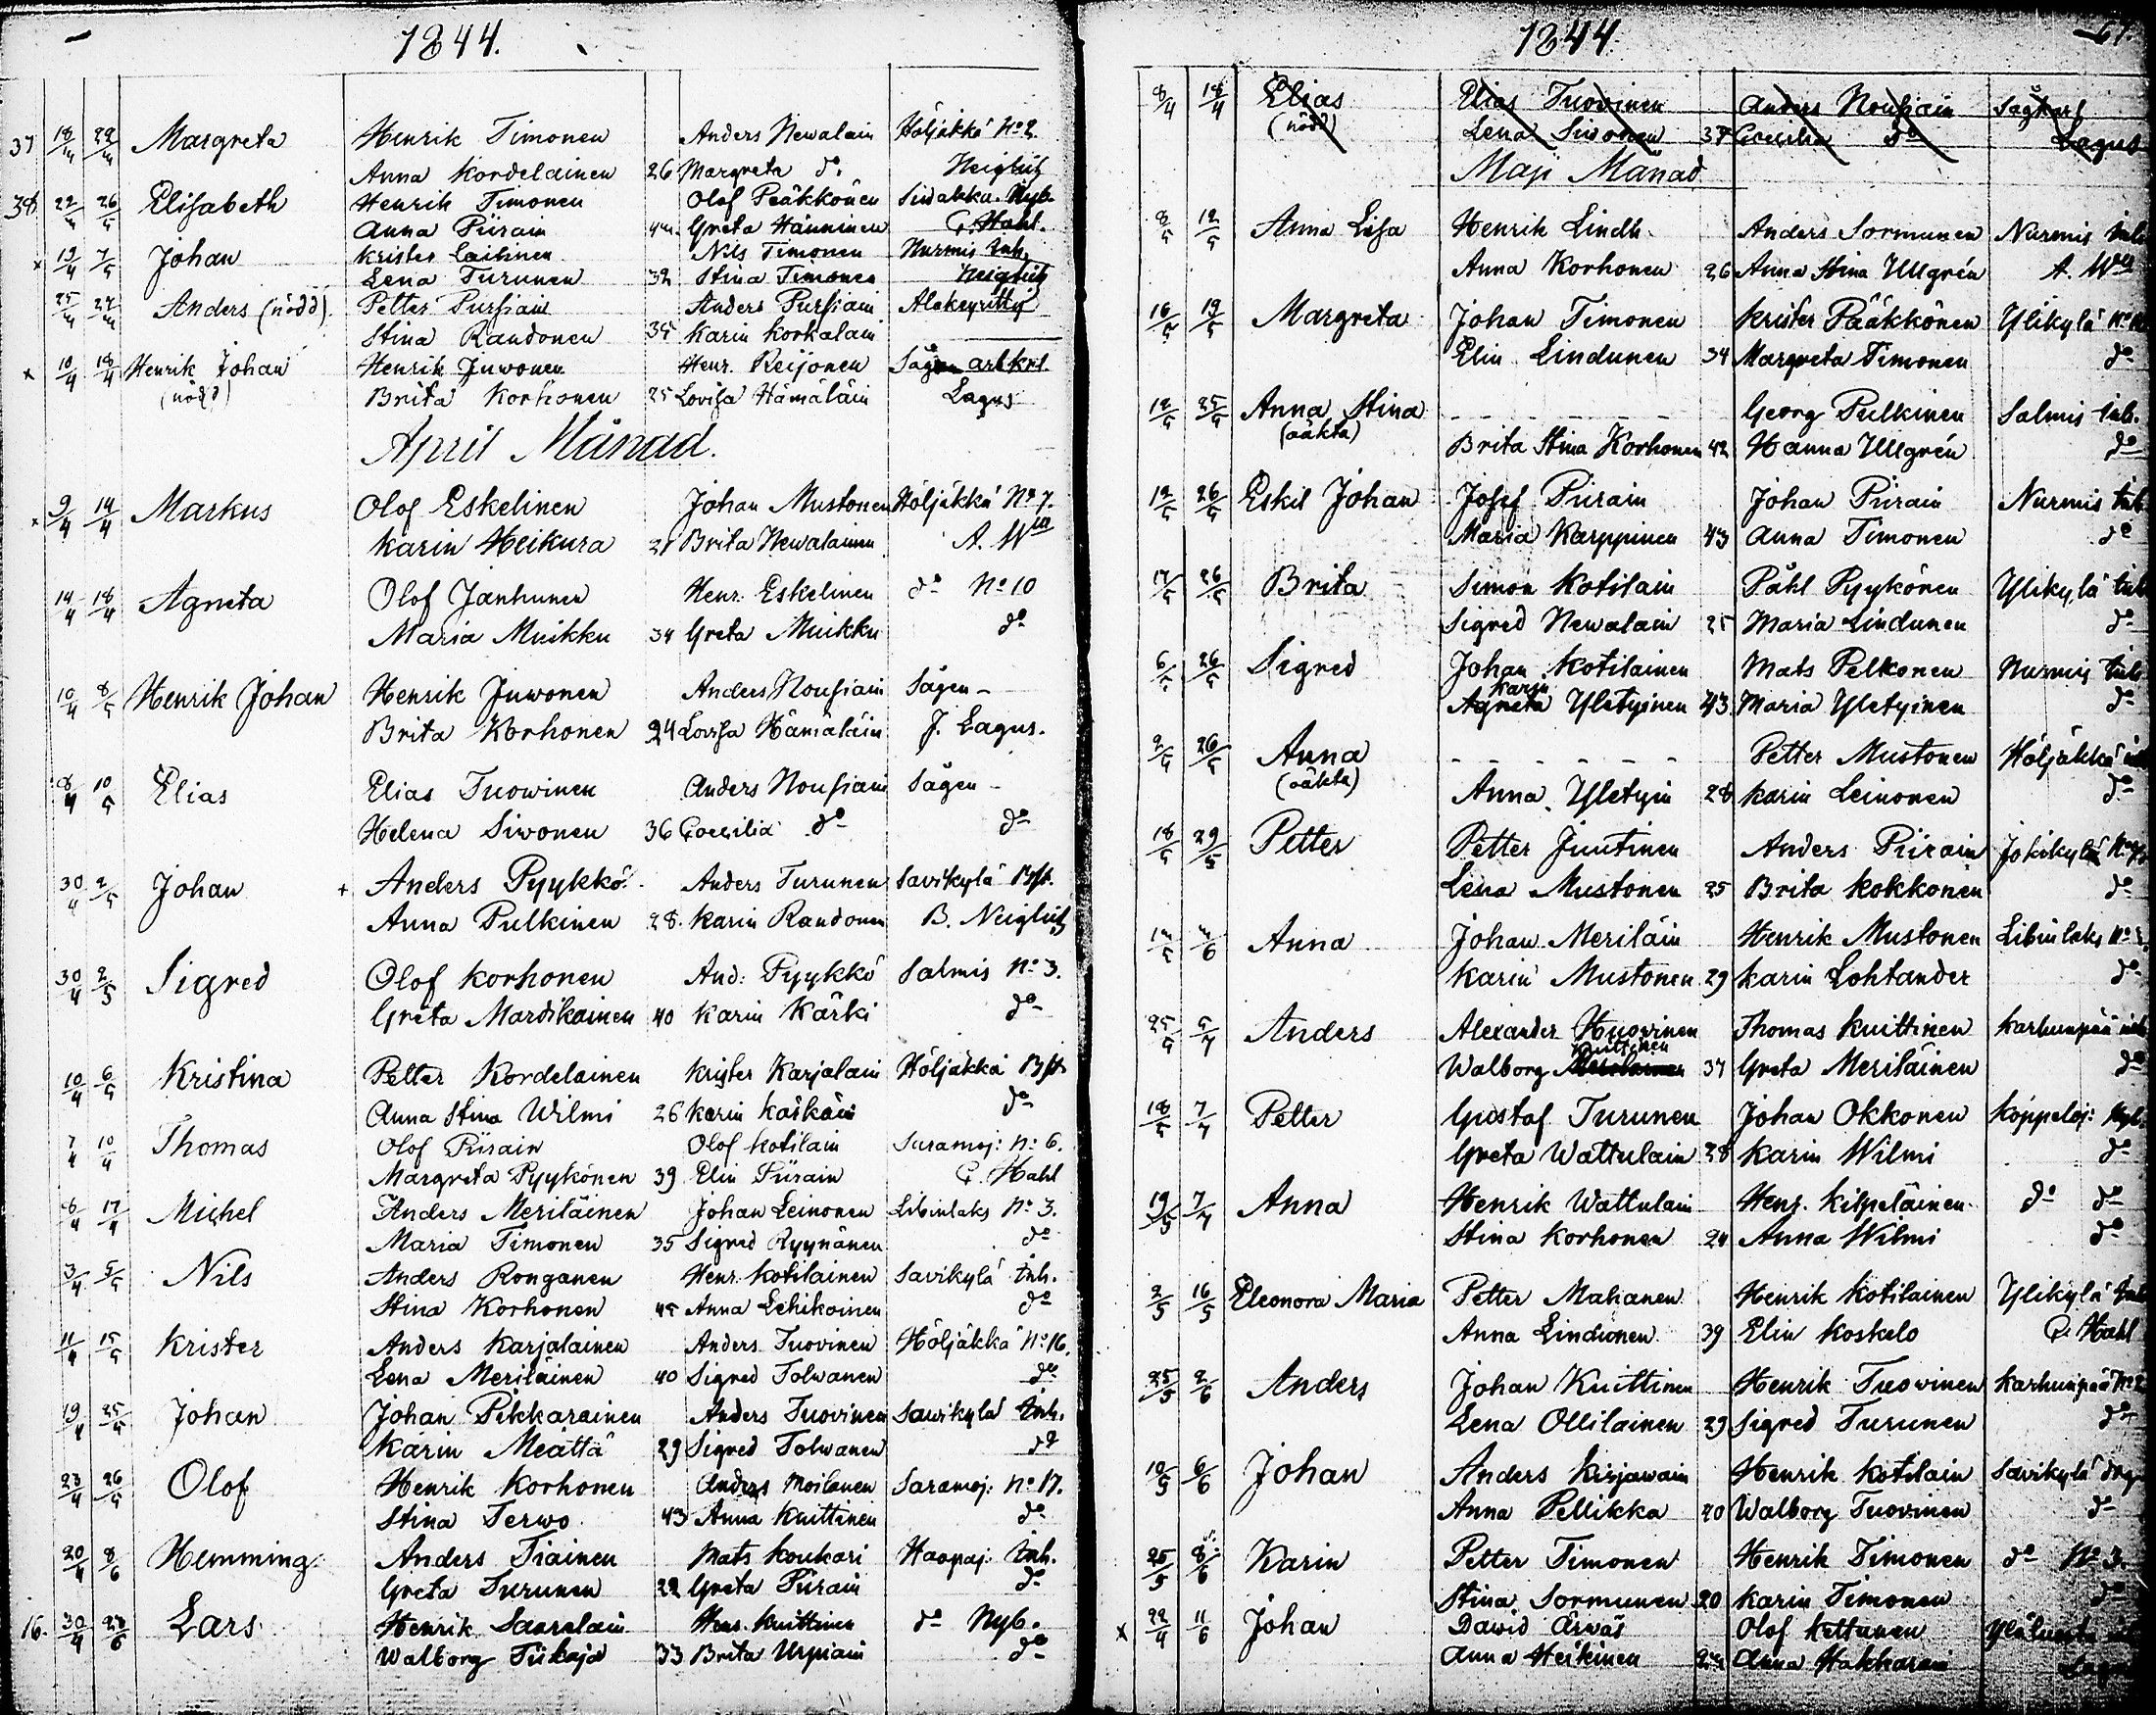 1844.
37 18/3 22/3 Margreta Henrik Timonen Anders Newalain Höljäkkä No 2.
Anna Kordelainen 26 Margreta do. Neiglick
38 22/3 26/5 Elisabeth Henrik Timonen Olof Pääkkönen Siwakka. Nyb.
Anna Piirain 44. Greta Hänninen G. Hahl.
x 13/4 7/5 Johan Krister Laitinen Nils Timonen Nurmis Inh.
Lena Turunen 32 Stina Timonen Neiglick
Anders (nödd). Petter Pursiain Anders Pursiain Alakeyritty
Stina Randonen 35 Karin Korkalain
x 10/4 18/4 Henrik Johan Henrik Juwonen Henr. Reijonen Sågen arbkrl.
(nödd) Brita Korhonen 25 Lovisa Hämäläin Lagus
April Månad.
x 9/4 14/4 Markus Olof Eskelinen Johan Mustonen Höljäkkä No 7.
Karin Heikura 21 Brita Newalainen A. Wlll
14/4 18/4 Agneta Olof Janhunen Henr. Eskelinen do No 10
Maria Muikku 34 Greta Muikku do
10/4 8/5 Henrik Johan Henrik Juwonen Anders Nousiain Sågen -
Brita Korhonen 24 Lovisa Hämäläin J. Lagus.
8/4 10/5 Elias Elias Tuowinen Anders Nousiain Sågen -
Helena Siwonen 36 Coecilia do do
30/4 2/5 Johan + Anders Pyykkö. Anders Turunen Savikylä Byst.
Anna Pulkinen 28. Karin Randonen B. Neiglick
30/4 2/5 Sigred Olof Korhonen And: Pyykkö Salmis No 3.
Greta Mardikainen 40 Karin Kärki do
10/4 6/5 Kristina Petter Kordelainen Krister Karjalain Höljäkkä Byst
Anna Stina Wilmi 26 Karin do
7/4 10/4 Thomas Olof Piirain Olof Kotilain Saramoj: No 6.
Margreta Pyykönen 39 Elin Piirain G. Hahl
6/4 17/4 Michel Anders Meriläinen Johan Leinonen Libinlaks No 3.
Maria Timonen 35 Sigred Ryynänen do
3/4 5/5 Nils Anders Ronganen Henr. Kotilainen Savikylä Inh.
Stina Korhonen 45 Anna Lehikoinen do
11/4 15/5 Krister Anders Karjalainen Anders Tuovinen Höljäkkä No 16.
Lena Meriläinen 40 Sigred Tolwanen do
19/4 25/5 Johan Johan Pikkarainen Anders Tuovinen Sawikylä Inh.
Karin Meättä 29 Sigred Tolwanen do
23/4 26/5 Olof Henrik Korhonen Anders Moilanen Saramoj: No 17.
Stina Terwo 43 Anna Kuittinen do
20/4 8/6 Hemming Anders Tiainen Mats Koukari Haapaj: Inh.
Greta Turunen 22 Greta Piirain do
16. 30/4 23/6 Lars Henrik Saarelain Henr. Kuittinen do Nyb.
Walborg Tiikaja 33 Brita Urpiain do
1844. 67.
8/4 18/4 Elias Elias Tuovinen Anders Nousiain Sågkarl
(nödd) Lena Siwonen 37 Coecilia do Lagus
Maji Månad.
8/5 12/5 Anna Lisa Henrik Lindh Anders Sormunen Nurmis Inh
Anna Korhonen 26 Anna Stina Ullgrén A. Wlll
16/5 19/5 Margreta Johan Timonen Krister Pääkkönen Ylikylä No
Elin Lindunen 34 Margreta Timonen do
12/5 25/5 Anna Stina - - - - - - Georg Pulkinen Salmis Inh.
(oäkta) Brita Stina Korhonen 42 Hanna Ullgrén do
12/5 26/5 Eskil Johan Josef Piirain Johan Piirain Nurmis Inh
Maria Karppinen 43 Anna Timonen do
17/5 26/5 Brita Simon Kotilain Påhl Pyykönen Ylikylä Inh
Sigred Newalain 25 Maria Lindunen do
6/5 26/5 Sigred Johan Kotilainen Mats Pelkonen Nurmis Inh
Karin
Agneta Yletyinen 43 Maria Yletyinen do
2/5 26/5 Anna - - - - - - Petter Mustonen Höljäkkä
(oäkta) Anna Yletyin 28 Karin Leinonen do
18/5 29/5 Petter Petter Juutinen Anders Piirain Jokikylä No
Lena Mustonen 25 Brita Kokkonen do
Anna Johan Meriläin Henrik Mustonen Libinlaks No 3.
Karin Mustonen 29 Karin Lohtander do
25/5 5/7 Anders Alexander Huovinen Thomas Kuittinen Karhunpää inh
Kuittinen
Walborg 37 Greta Meriläinen do
18/5 7/7 Petter Gustaf Turunen Johan Okkonen Koppeloj: Nyb.
Greta Wattulain 38 Karin Wilmi do
19/5 7/7 Anna Henrik Wattulain Henr. Kilpeläinen do do
Stina Korhonen 24 Anna Wilmi do
2/5 16/5 Eleonora Maria Petter Mahanen Henrik Kotilainen Ylikylä Inh
Anna Lindunen 39 Elin Koskelo G. Hahl
25/5 2/6 Anders Johan Kuittinen Henrik Tuovinen Karhunpää No 2
Lena Ollilainen 29 Sigred Turunen do
10/5 6/6 Johan Anders Kirjawain Henrik Kotilain Savikylä
Anna Pellikka 20 Walborg Tuovinen do
25/5 8/6 Karin Petter Timonen Henrik Timonen do No 3.
Stina Sormunen 20 Karin Timonen do
x 22/4 11/6 Johan Dawid Ärväs Olof Kettunen
Anna Heikinen Anna Hakkarain Lagus